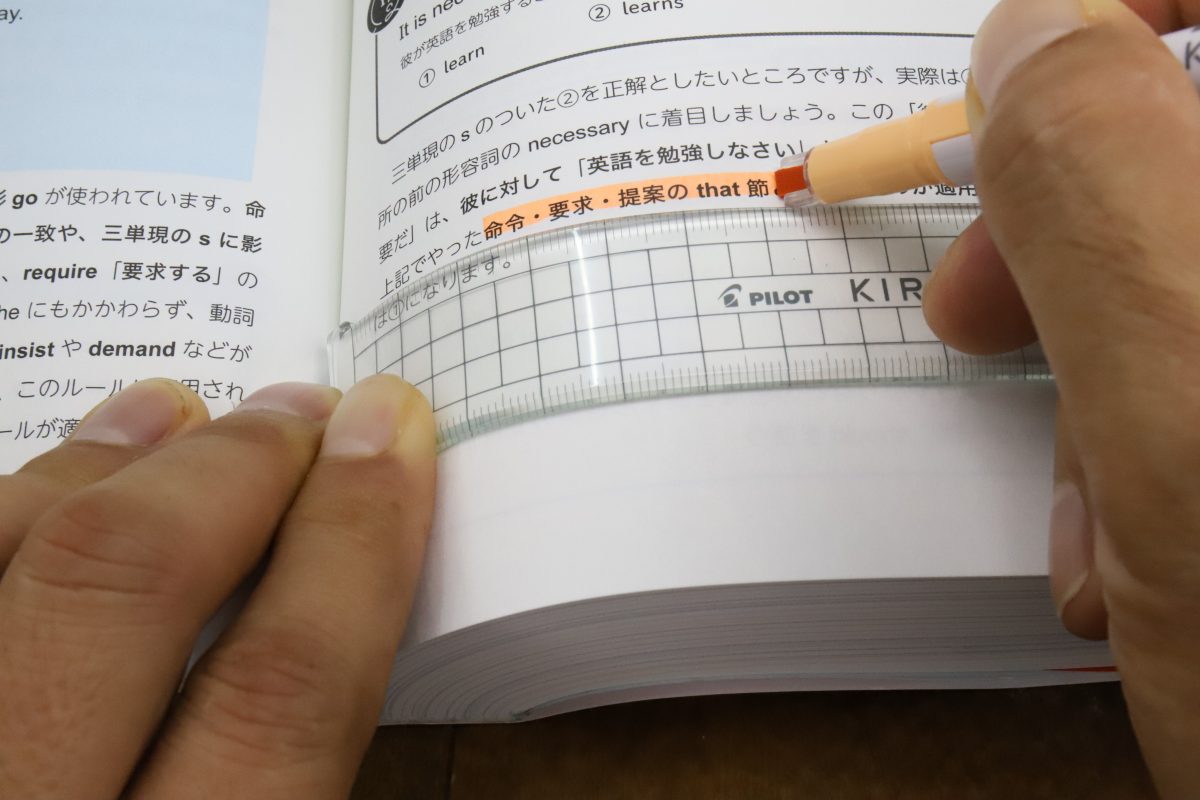 ay.
go が使われています。命
の一致や、三単現の s に影
、require「要求する」の
he にもかかわらず、動詞
insist や demand などが
、このルールは
ールが適
It is nec
彼が英語を勉強する
① learn
② learns
三単現の s のついた②を正解としたいところですが、実際は
所の前の形容詞の necessary に着目しましょう。この「
要だ」は、彼に対して「英語を勉強しなさい」
上記でやった命令・要求・提案の that 節
は①になります。
PILOT KIR
K